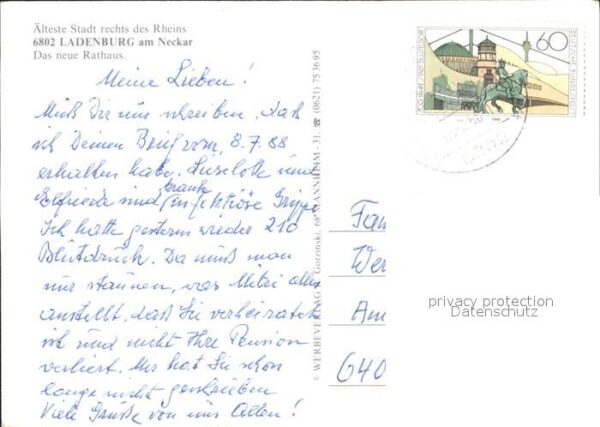 Älteste Stadt rechts des Rheins
6802 LADENBURG am Neckar
Das neue Rathaus.
Meine Lieben!
Muß Dir nun schreiben, daß
ich Deinen Brief vom 8.7.88
erhalten habe. Lieselotte und
Elfriede sind krank
(infektiöse Grippe
Ich hatte gestern wieder 210
Blutdruck. Da muß man
nur staunen, was Mitzi alles
anstellt, daß Sie verheiratet
ist und nicht Ihre Pension
verliert. Uns hat Sie schon
lange nicht geschrieben
Viele Grüße von uns Allen!
© WERBEVERLAG Gorzinski, 68 MANNHEIM-31, ☎ (0621) 753695
60
DEUTSCHE BUNDESPOST
700 JAHRE STADT DÜSSELDORF
Fam
Wer
Am
640
privacy protection
Datenschutz